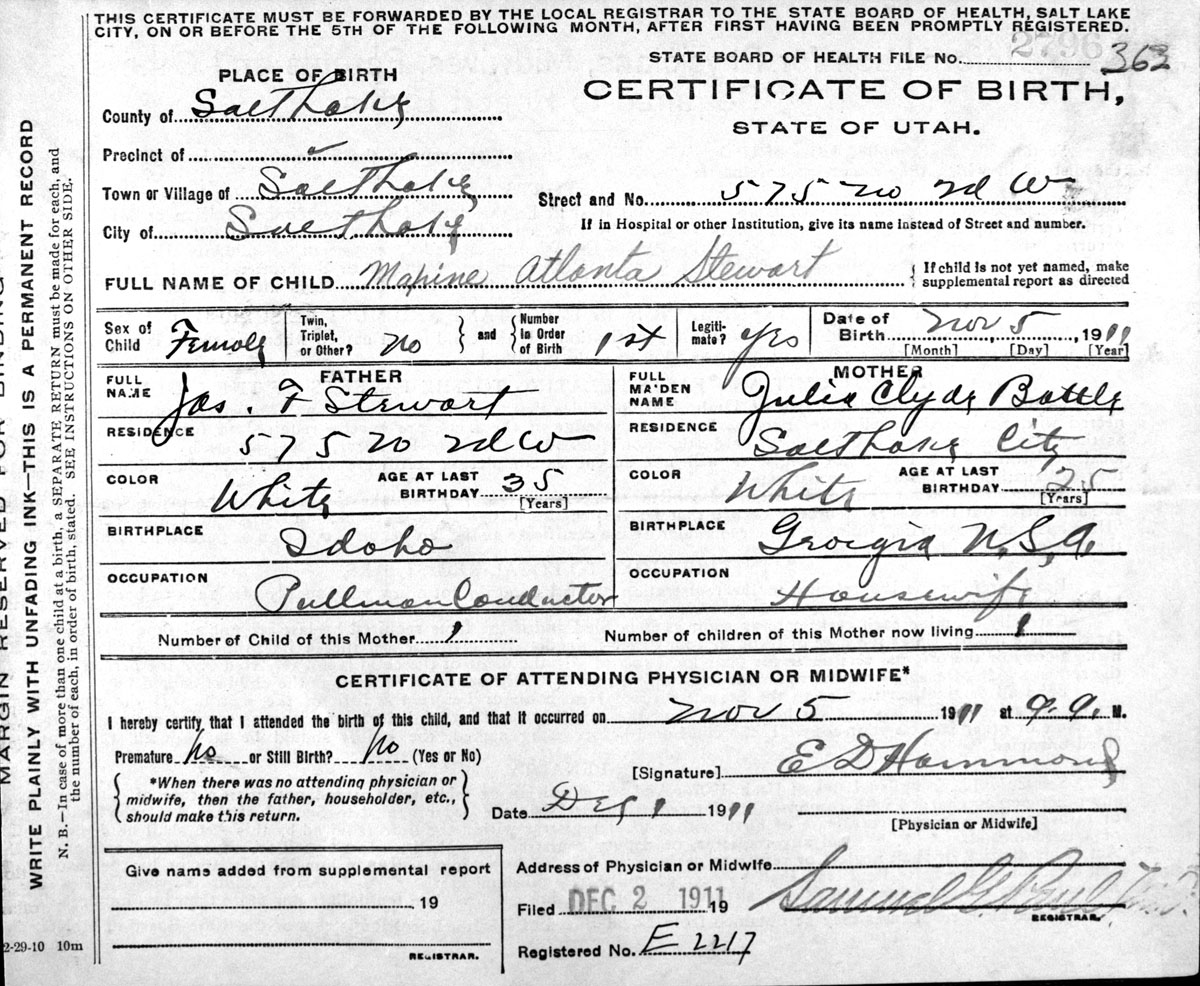 THIS CERTIFICATE MUST BE FORWARDED BY THE LOCAL REGISTRAR TO THE STATE BOARD OF HEALTH, SALT LAKE
CITY, ON OR BEFORE THE 5TH OF THE FOLLOWING MONTH, AFTER FIRST HAVING BEEN PROMPTLY REGISTERED.
2796
STATE BOARD OF HEALTH FILE No. 363
PLACE OF BIRTH
CERTIFICATE OF BIRTH,
STATE OF UTAH.
County of Salt Lake
Precinct of
Town or Village of Salt Lake
Street and No. 575 no 2d W
City of Salt Lake
If in Hospital or other Institution, give its name instead of Street and number.
FULL NAME OF CHILD Maxine Atlanta Stewart
If child is not yet named, make
supplemental report as directed
Sex of Child Female
Twin, Triplet, or Other? no
and Number In Order of Birth 1st
Legitimate? Yes
Date of Birth Nov 5, 1911
[Month] [Day] [Year]
FATHER
FULL NAME Jas. F Stewart
RESIDENCE 575 no 2d W
COLOR White AGE AT LAST BIRTHDAY 35 [Years]
BIRTHPLACE Idaho
OCCUPATION Pullman Conductor
MOTHER
FULL MAIDEN NAME Julia Clyde Battle
RESIDENCE Salt Lake City
COLOR White AGE AT LAST BIRTHDAY 25 [Years]
BIRTHPLACE Georgia U.S.A.
OCCUPATION Housewife
Number of Child of this Mother 1 Number of children of this Mother now living 1
CERTIFICATE OF ATTENDING PHYSICIAN OR MIDWIFE*
I hereby certify that I attended the birth of this child, and that it occurred on Nov 5 1911 at 9 A. M.
Premature No or Still Birth? No (Yes or No)
[Signature] E D Hammond
*When there was no attending physician or
midwife, then the father, householder, etc.,
should make this return.
Date Dec 1 1911
[Physician or Midwife]
Give name added from supplemental report
19
REGISTRAR.
Address of Physician or Midwife
Filed DEC 2 1911 19
Samuel G. Paul
REGISTRAR.
Registered No. E 2217
2-29-10 10m
MARGIN RESERVED FOR BINDING
WRITE PLAINLY WITH UNFADING INK—THIS IS A PERMANENT RECORD
N. B.—In case of more than one child at a birth, a SEPARATE RETURN must be made for each, and
the number of each, in order of birth, stated. SEE INSTRUCTIONS ON OTHER SIDE.